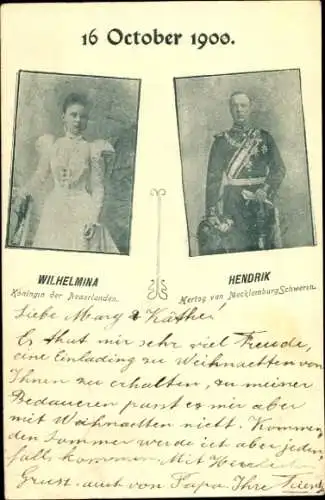 16 October 1900.
WILHELMINA
Königin der Neaerlanden.
HENDRIK
Hertog van Mecklenburg Schwerin.
Liebe Mary & Käthe!
Es that mir sehr viel Freude,
eine Einlading zu Weihnaetten von
Ihnen zu erhalten, zu meiner
Bedaueren passt es mir aber
mit Weihnachten nicht. Kommen
den Sommer werde ich aber jeden
falls kommen. Mit Herzlich
Gruss. auch von Papa Ihre